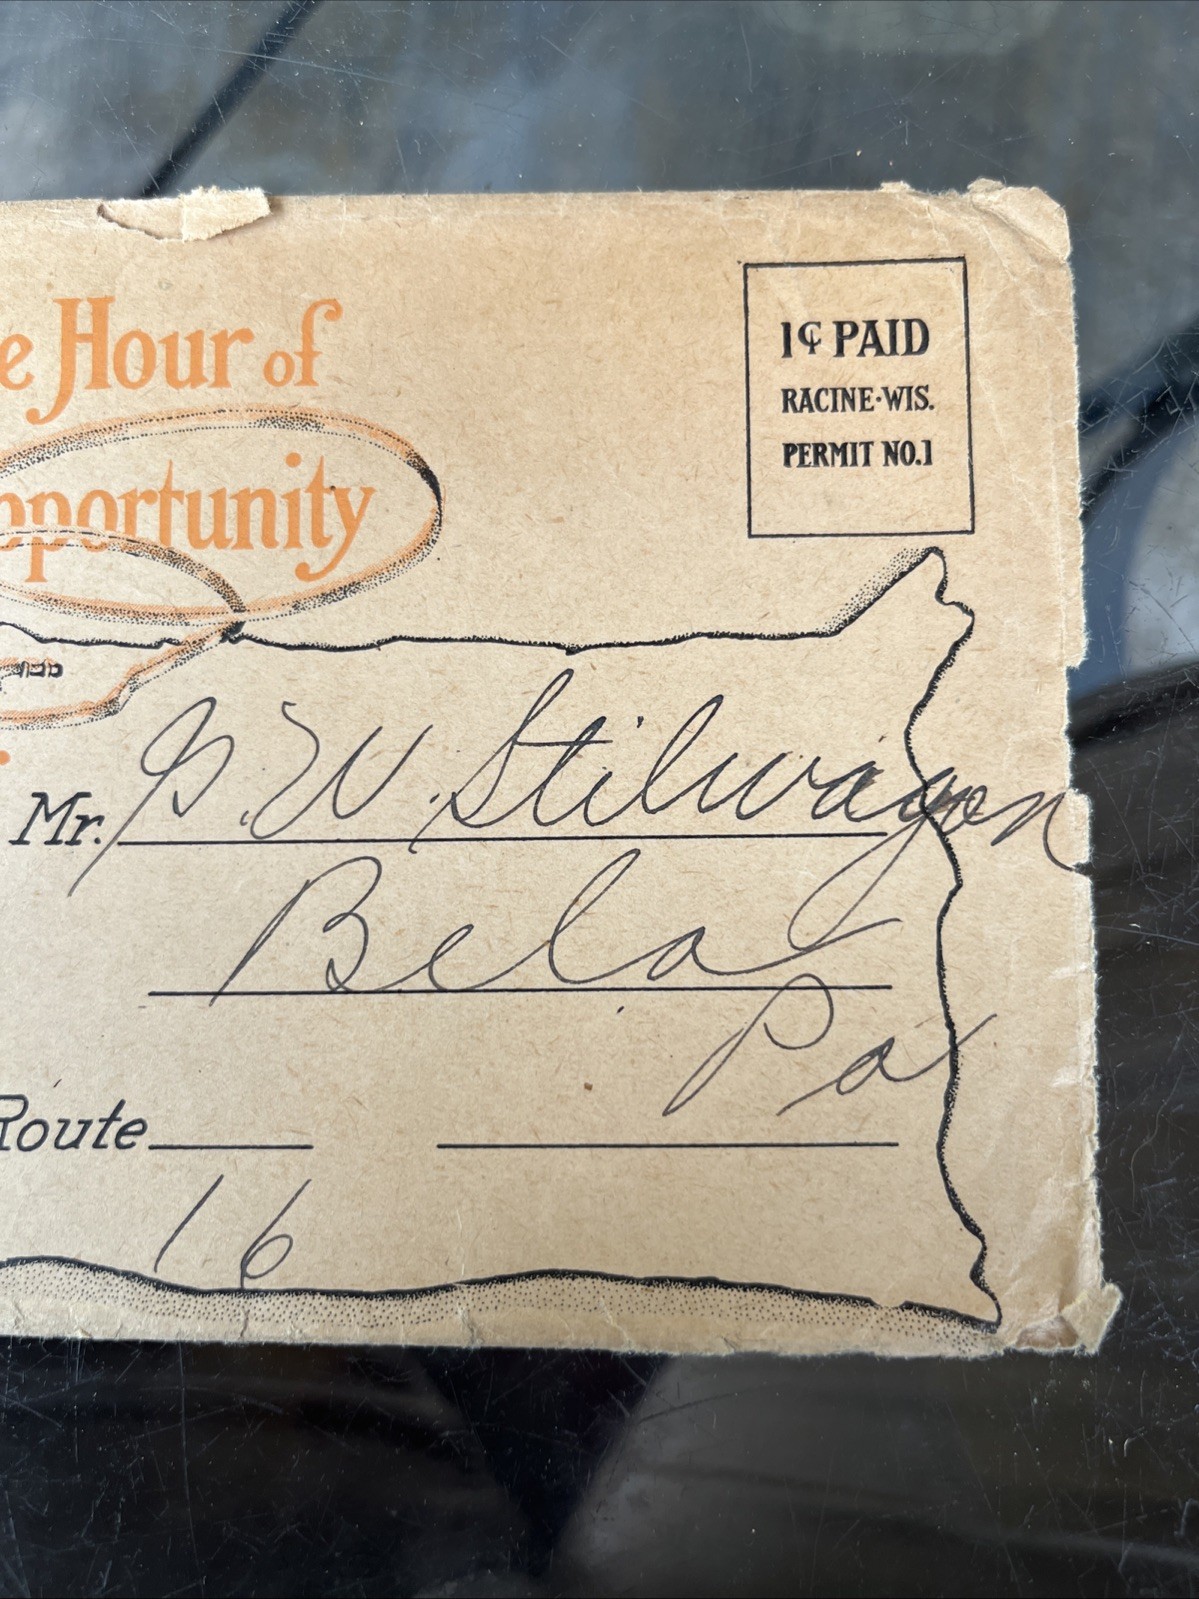 e Hour of
pportunity
1¢ PAID
RACINE·WIS.
PERMIT NO.1
Mr. G. W. Stilwagon
Bela
Pa
Route
16